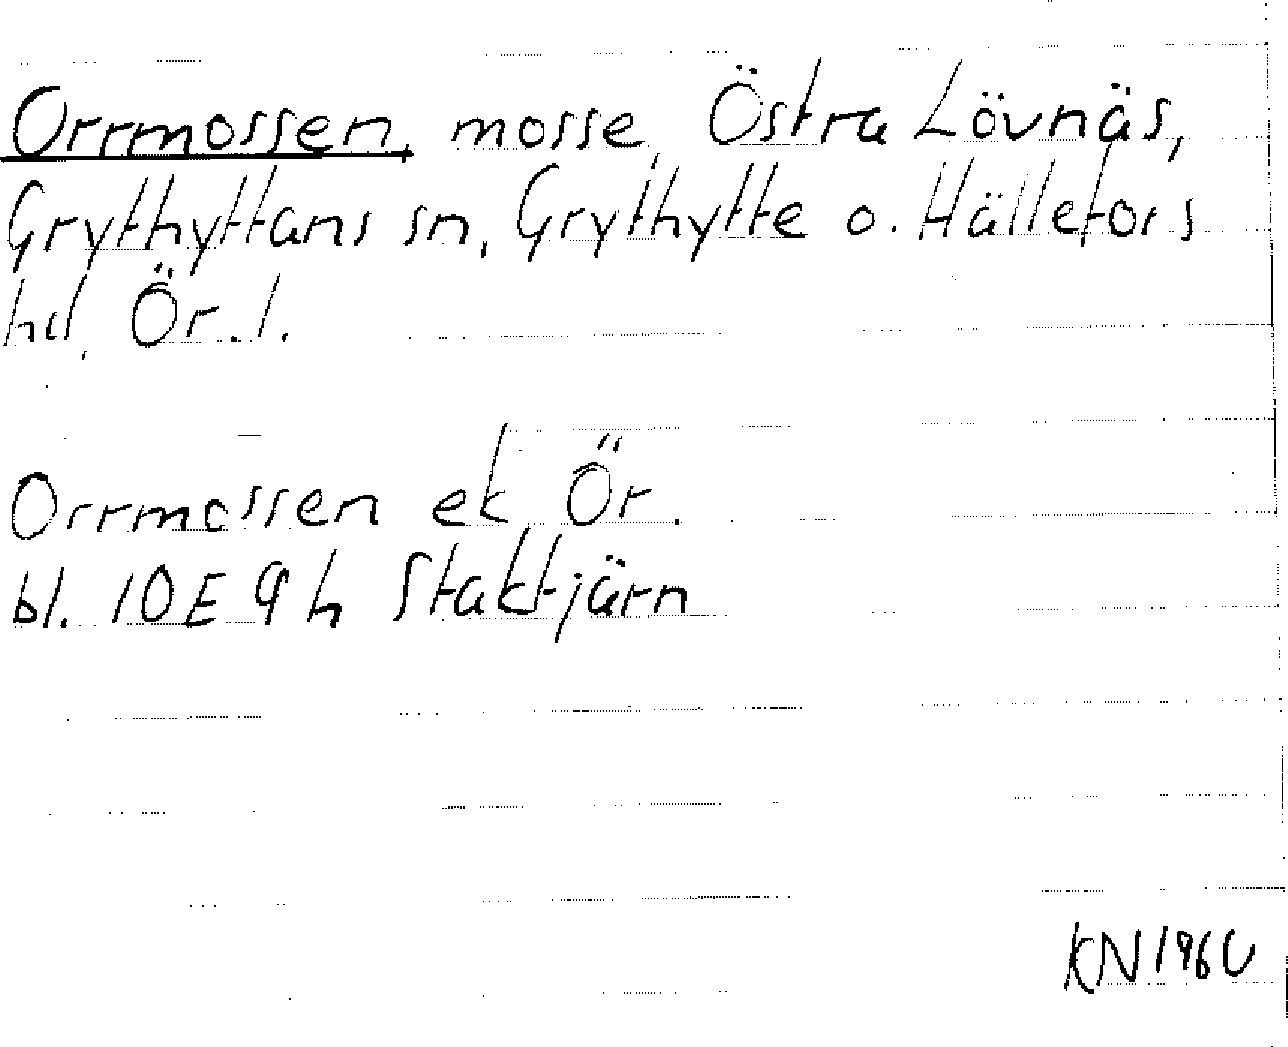 Orrmossen, mosse, Östra Lövnäs,
Grythyttans sn, Grythytte o. Hällefors
hd, Ör. l.
Orrmossen ek Ör.
bl. 10E 9h Staktjärn
KN 1960